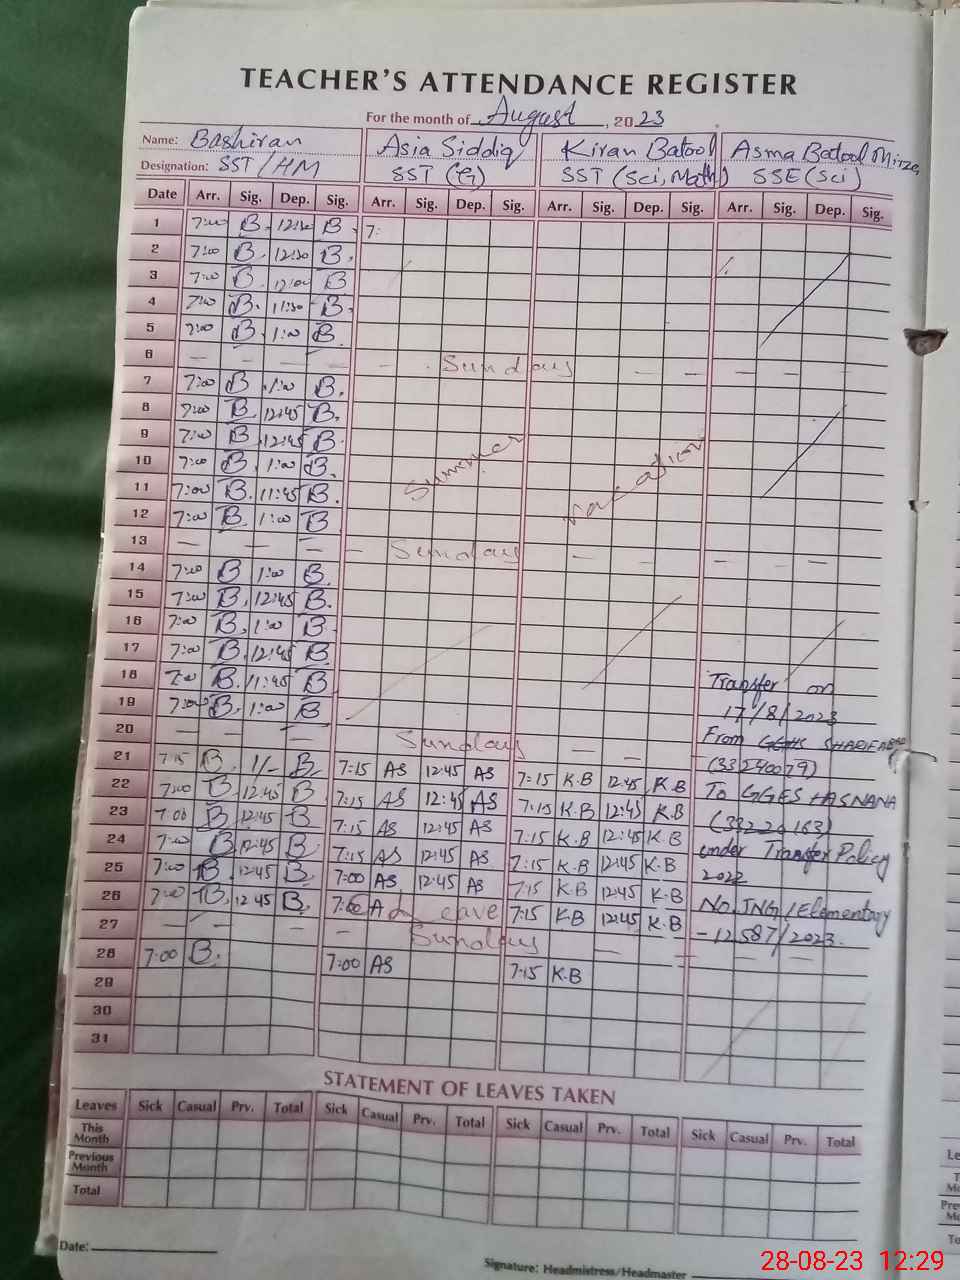 TEACHER'S ATTENDANCE REGISTER
For the month of August, 2023
Name: Bashiran Asia Siddiq Kiran Batool Asma Batool Mirza
Designation: SST/HM SST (G) SST (Sci, Math) SSE (Sci)
Date Arr. Sig. Dep. Sig. Arr. Sig. Dep. Sig. Arr. Sig. Dep. Sig. Arr. Sig. Dep. Sig.
1 7:00 B. 12:30 B. 7:
2 7:00 B. 12:30 B.
3 7:00 B. 12:00 B
4 7:00 B. 11:30 B.
5 7:00 B. 1:00 B.
6 — — — — — Sunday — — — —
7 7:00 B 1:00 B.
8 7:00 B. 12:45 B.
9 7:00 B 12:45 B.
10 7:00 B. 1:00 B. Summer Vacation
11 7:00 B. 11:45 B.
12 7:00 B. 1:00 B
13 — — — — Sunday — — — — —
14 7:00 B 1:00 B.
15 7:00 B. 12:45 B.
16 7:00 B. 1:00 B
17 7:00 B. 12:45 B
18 7:00 B. 11:45 B Transfer on
19 7:00 B. 1:00 B 17/8/2023
20 — — — Sunday — — From GGHS SHARIFABAD
21 7:15 B. 1/- B. 7:15 AS 12:45 AS 7:15 K.B 12:45 K.B (33240079)
22 7:00 B 12:45 B. 7:15 AS 12:45 AS 7:15 K.B 12:45 K.B To GGES HASNANA
23 7:00 B 12:45 B 7:15 AS 12:45 AS 7:15 K.B 12:45 K.B (33220163)
24 7:00 B 12:45 B 7:15 AS 12:45 AS 7:15 K.B 12:45 K.B under Transfer Policy
25 7:00 B. 12:45 B. 7:00 AS 12:45 AS 7:15 K.B 12:45 K.B 2022
26 7:00 B. 12:45 B. Leave 7:15 K.B 12:45 K.B No. JNG/Elementary
27 — — — — — Sunday — — — -12587/2023.
28 7:00 B. 7:00 AS 7:15 K.B
29
30
31
STATEMENT OF LEAVES TAKEN
Leaves Sick Casual Prv. Total Sick Casual Prv. Total Sick Casual Prv. Total Sick Casual Prv. Total
This Month
Previous Month
Total
Date:
Signature: Headmistress/Headmaster
28-08-23 12:29